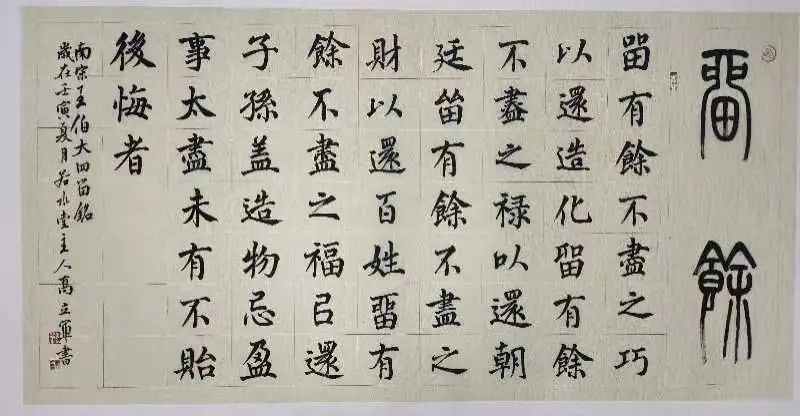 留餘
留有餘不盡之巧
以還造化留有餘
不盡之禄以還朝
廷留有餘不盡之
財以還百姓留有
餘不盡之福以還
子孫盖造物忌盈
事太盡未有不貽
後悔者
南宗王伯大四留銘
歲在壬寅夏月若水堂主人高立軍書